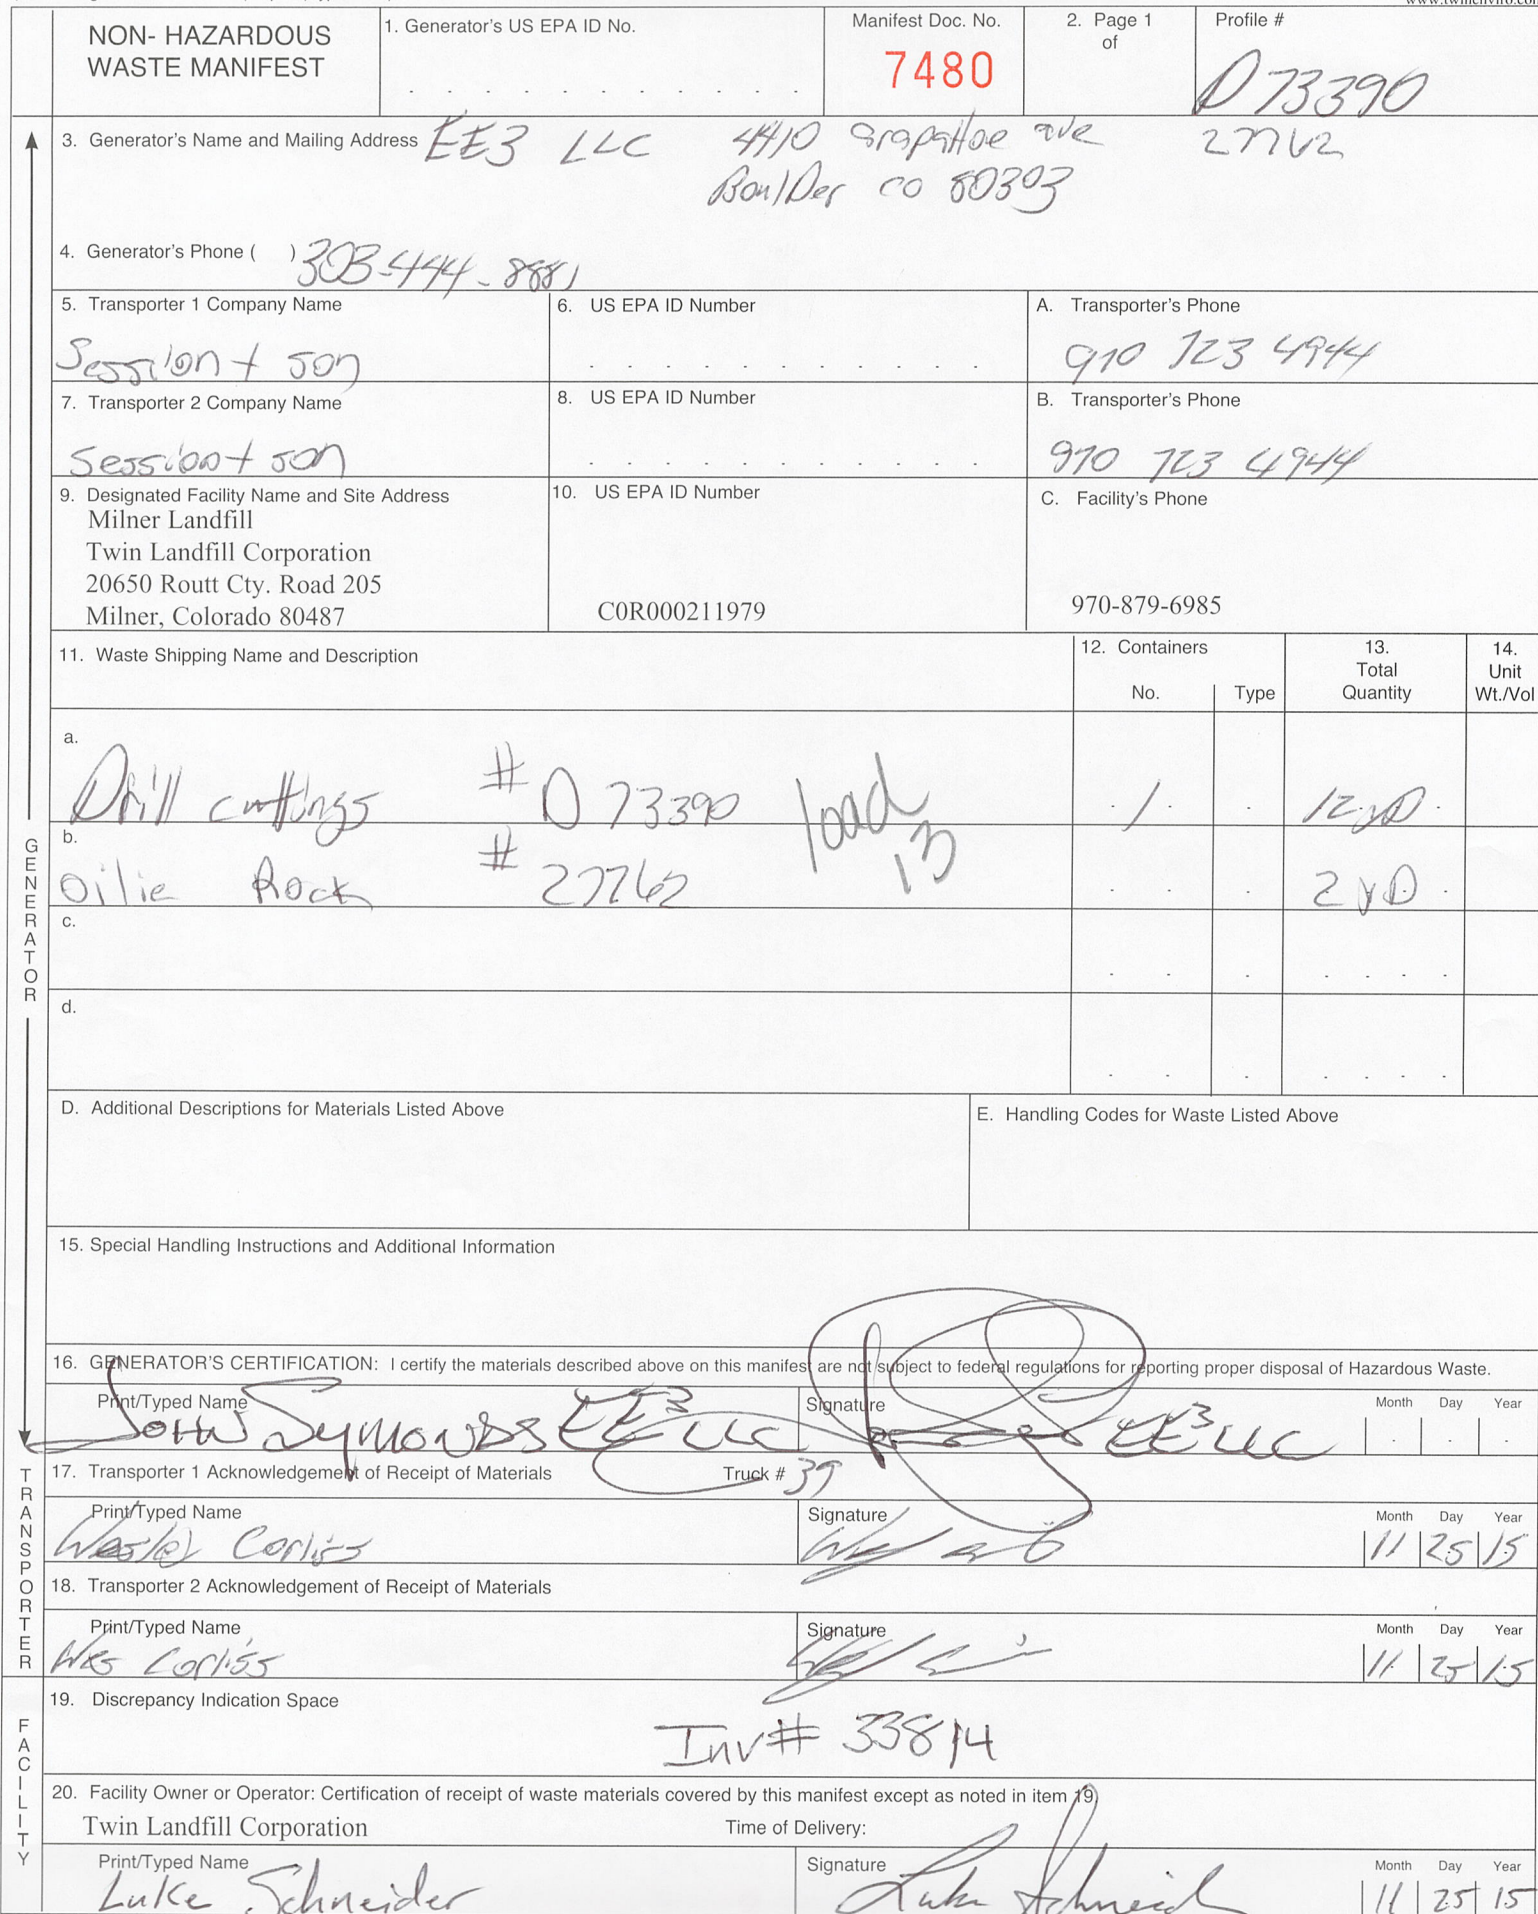 NON- HAZARDOUS
WASTE MANIFEST
1. Generator's US EPA ID No.
Manifest Doc. No.
7480
2. Page 1
of
Profile #
D 73390
3. Generator's Name and Mailing Address EE3 LLC 4410 arapaHoe ave 27762
BoulDer co 80303
4. Generator's Phone ( ) 303-444-8881
5. Transporter 1 Company Name
Session + son
6. US EPA ID Number
A. Transporter's Phone
970 723 4944
7. Transporter 2 Company Name
Session + son
8. US EPA ID Number
B. Transporter's Phone
970 723 4944
9. Designated Facility Name and Site Address
Milner Landfill
Twin Landfill Corporation
20650 Routt Cty. Road 205
Milner, Colorado 80487
10. US EPA ID Number
C0R000211979
C. Facility's Phone
970-879-6985
11. Waste Shipping Name and Description
12. Containers
No.
Type
13.
Total
Quantity
14.
Unit
Wt./Vol
a.
Drill cuttings # D 73390 load 1 12 yD
b.
Oilie Rock # 27762 13 2 yD
c.
d.
D. Additional Descriptions for Materials Listed Above
E. Handling Codes for Waste Listed Above
15. Special Handling Instructions and Additional Information
16. GENERATOR'S CERTIFICATION: I certify the materials described above on this manifest are not subject to federal regulations for reporting proper disposal of Hazardous Waste.
Print/Typed Name
JOHN SYMONDS EE3 LLC
Signature
EE3 LLC
Month Day Year
17. Transporter 1 Acknowledgement of Receipt of Materials
Truck # 39
Print/Typed Name
Wesley Corliss
Signature
Month Day Year
11 25 15
18. Transporter 2 Acknowledgement of Receipt of Materials
Print/Typed Name
Wes Corliss
Signature
Month Day Year
11 25 15
19. Discrepancy Indication Space
Inv# 33814
20. Facility Owner or Operator: Certification of receipt of waste materials covered by this manifest except as noted in item 19.
Twin Landfill Corporation
Time of Delivery:
Print/Typed Name
Luke Schneider
Signature
Luke Schneid
Month Day Year
11 25 15
GENERATOR
TRANSPORTER
FACILITY